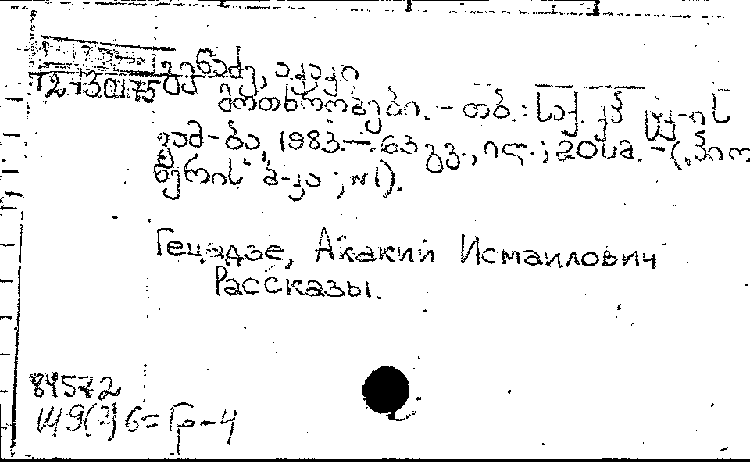 12-130175 გეწაძე, აკაკი
მოთხრობები. – თბ.: საქ. კპ ცკ-ის
გამ-ბა, 1983. – 63 გვ., ილ.; 20 სმ. – („პიო
ნერის“ ბ-კა; №1).
Гецадзе, Акакий Исмаилович
Рассказы.
84572